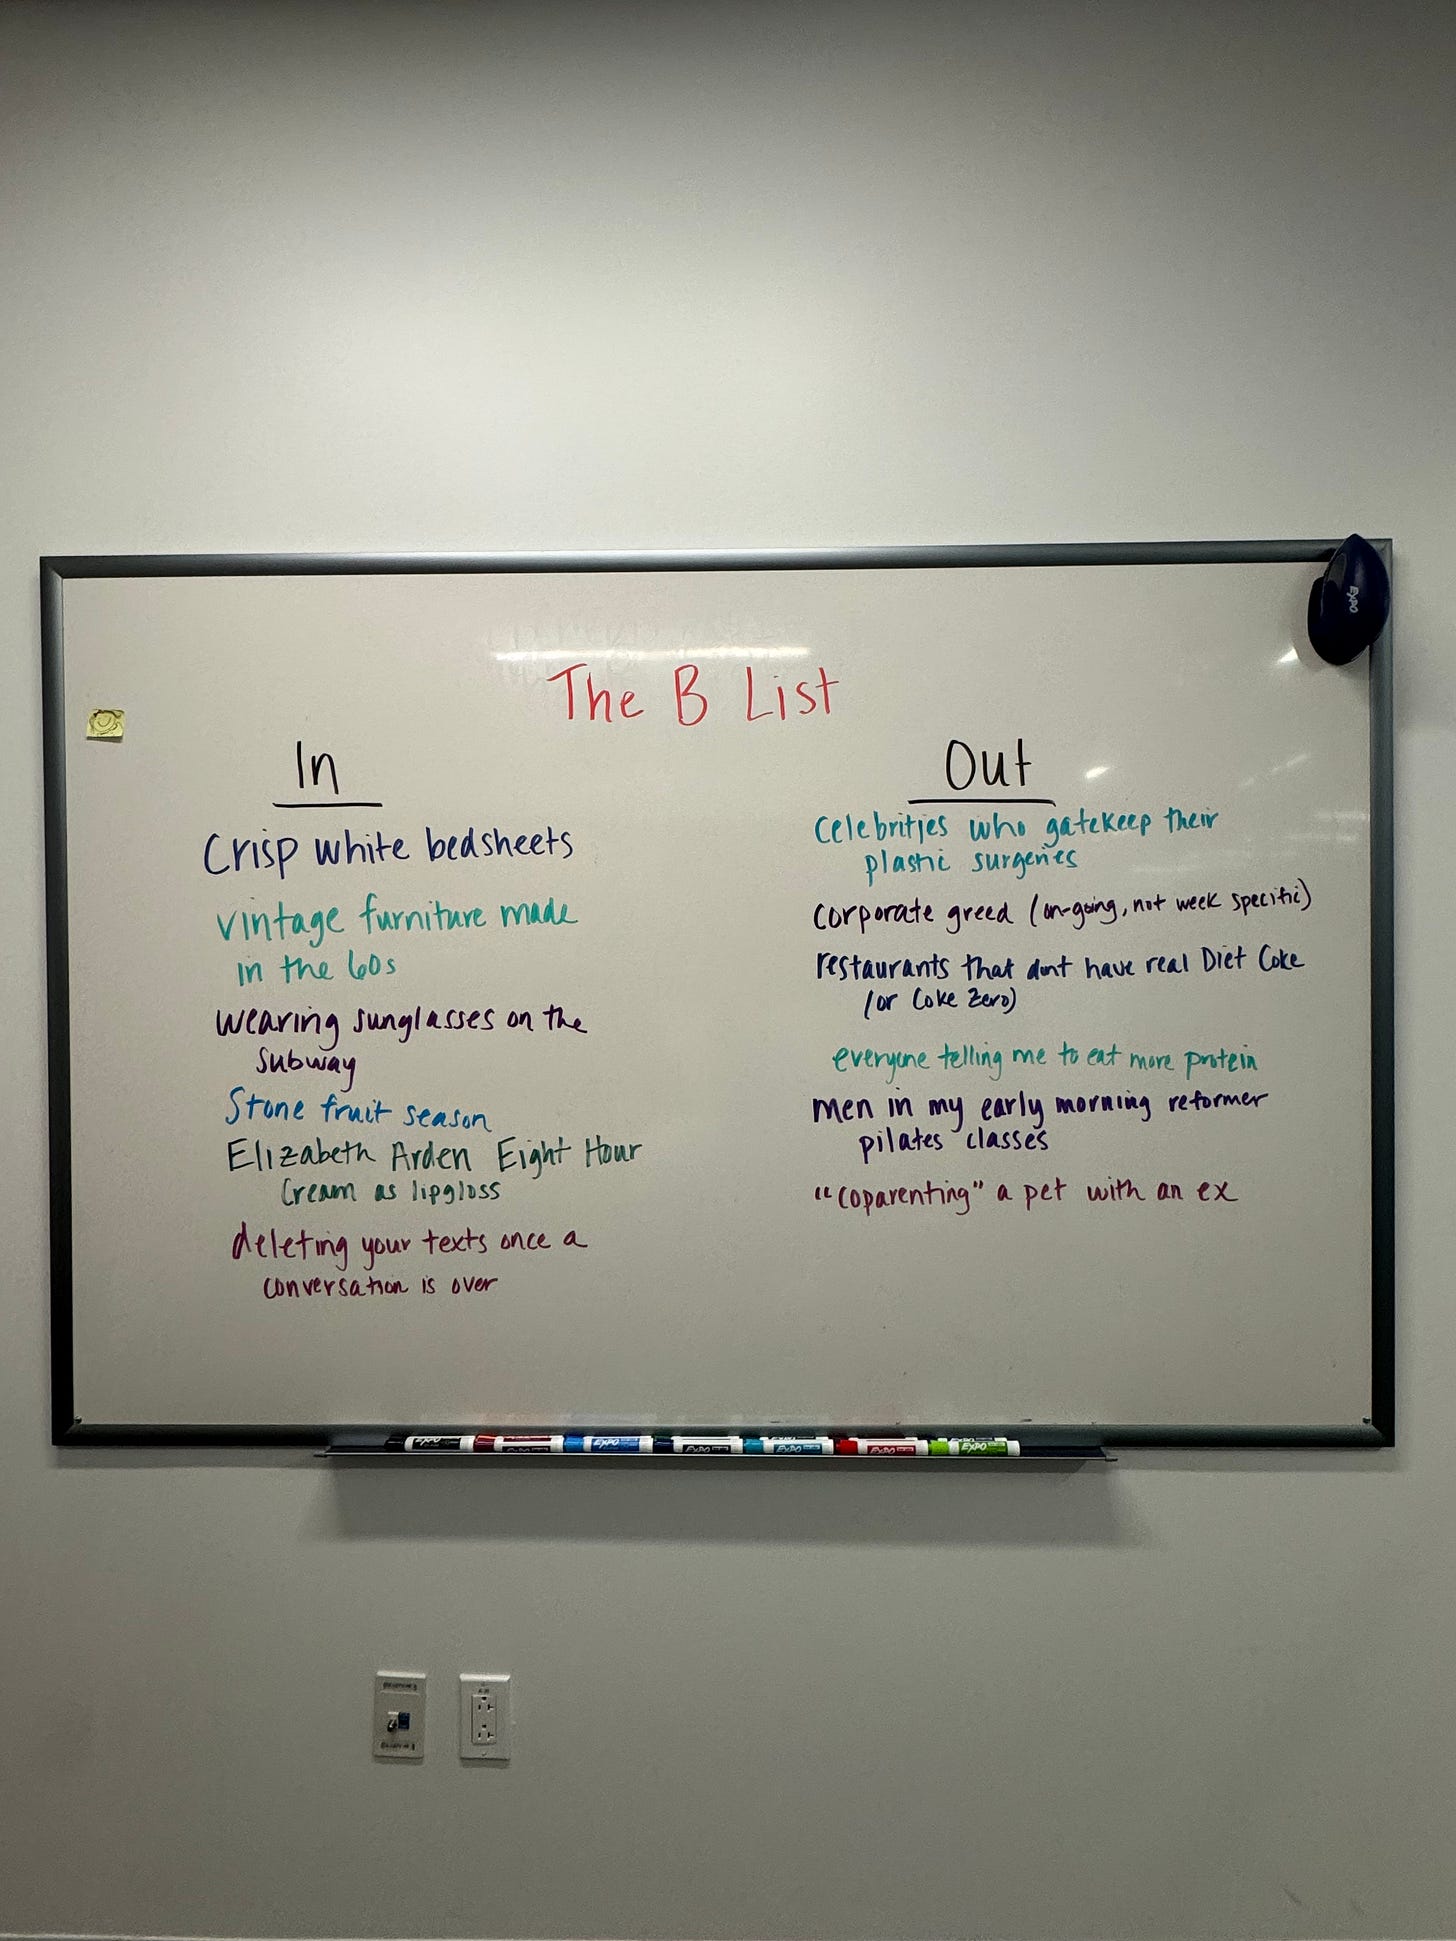 The B List
In
Crisp white bedsheets
vintage furniture made
in the 60s
wearing sunglasses on the
subway
Stone fruit season
Elizabeth Arden Eight Hour
Cream as lipgloss
deleting your texts once a
conversation is over
Out
celebrities who gatekeep their
plastic surgeries
corporate greed (on-going, not week specific)
restaurants that dont have real Diet Coke
(or Coke Zero)
everyone telling me to eat more protein
men in my early morning reformer
pilates classes
"coparenting" a pet with an ex
EXPO
EXPO
EXPO
EXPO
EXPO
EXPO
EXPO
EXPO